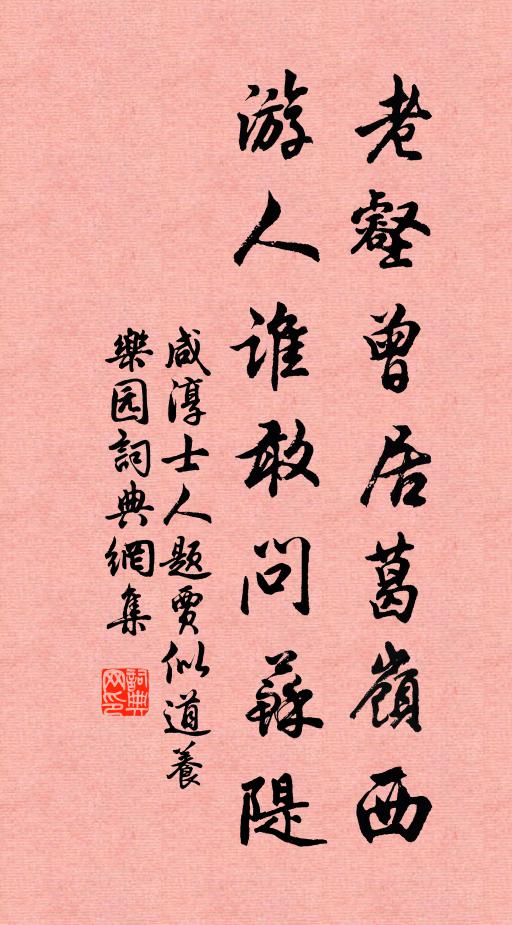 老壑曾居葛嶺西
游人誰敢問蘇隄
咸淳士人題賈似道養
樂园詞典網集
詞典网印